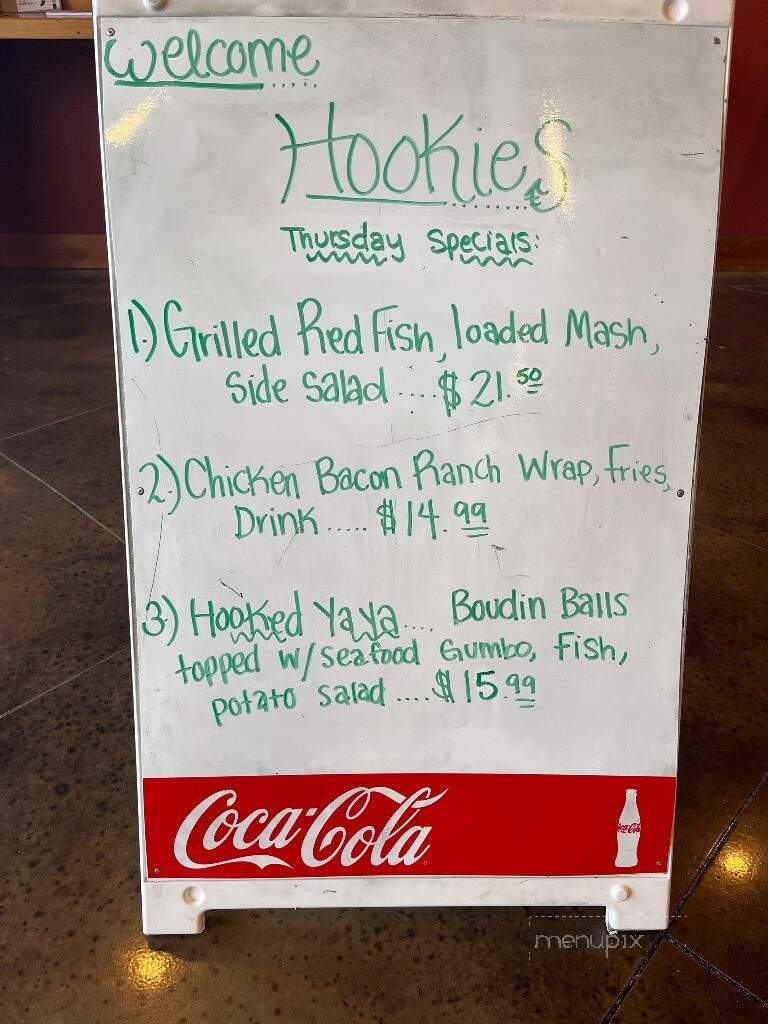 Welcome
Hookies
Thursday Specials:
1.) Grilled Red Fish, loaded Mash,
Side Salad ....$21.50
2.) Chicken Bacon Ranch Wrap, fries,
Drink ..... $14.99
3.) Hooked YaYa.... Boudin Balls
topped w/ seafood Gumbo, Fish,
potato salad ....$15.99
Coca-Cola
Coca-Cola
menupix